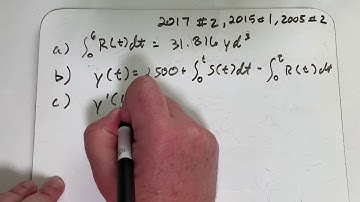 2017 #2, 2015 #1, 2005 #2
a) ∫₀⁶ R(t)dt = 31.816 yd³
b) y(t) = 2500 + ∫₀ᵗ S(t)dt - ∫₀ᵗ R(t)dt
c) y'(